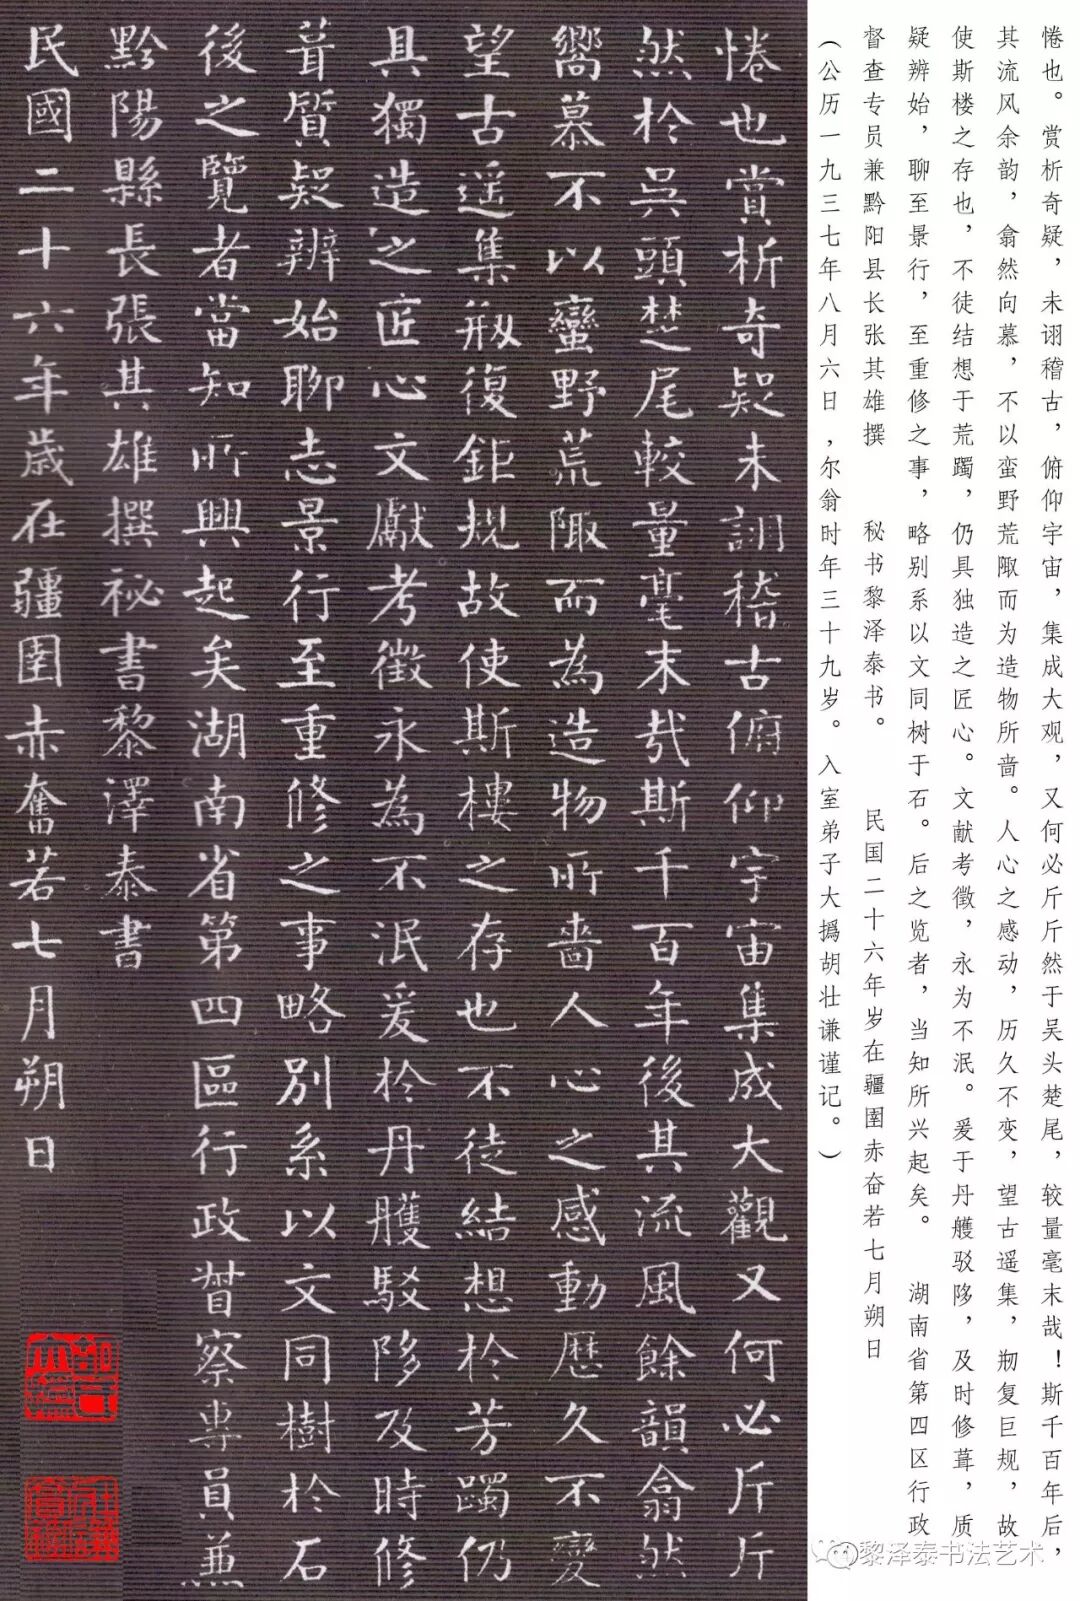 惓也。赏析奇疑，未诩稽古，俯仰宇宙，集成大观，又何必斤斤然于吴头楚尾，较量毫末哉！斯千百年后，
其流风余韵，翕然向慕，不以蛮野荒陬而为造物所啬。人心之感动，历久不变，望古遥集，剏复巨规，故
使斯楼之存也，不徒结想于荒躅，仍具独造之匠心。文献考徵，永为不泯。爰于丹艧驳陊，及时修葺，质
疑辨始，聊至景行，至重修之事，略别系以文同树于石。后之览者，当知所兴起矣。 湖南省第四区行政
督查专员兼黔阳县长张其雄撰 秘书黎泽泰书。 民国二十六年岁在疆圉赤奋若七月朔日
（公历一九三七年八月六日，尔翁时年三十九岁。入室弟子大撝胡壮谦谨记。）
惓也賞析奇疑未詡稽古俯仰宇宙集成大觀又何必斤斤
然於吳頭楚尾較量毫末哉斯千百年後其流風餘韻翕然
嚮慕不以蠻野荒陬而為造物所嗇人心之感動歷久不變
望古遥集剏復鉅規故使斯樓之存也不徒結想於芳躅仍
具獨造之匠心文獻考徵永為不泯爰於丹艧駁陊及時修
葺質疑辨始聊志景行至重修之事略別系以文同樹於石
後之覽者當知所興起矣湖南省第四區行政督察專員兼
黔陽縣長張其雄撰祕書黎澤泰書
民國二十六年歲在疆圉赤奮若七月朔日
黎泽泰书法艺术